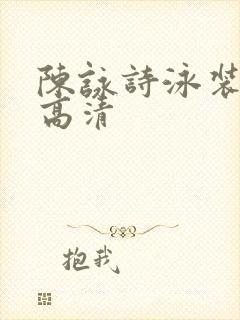 陳詠詩泳裝
高清
抱我